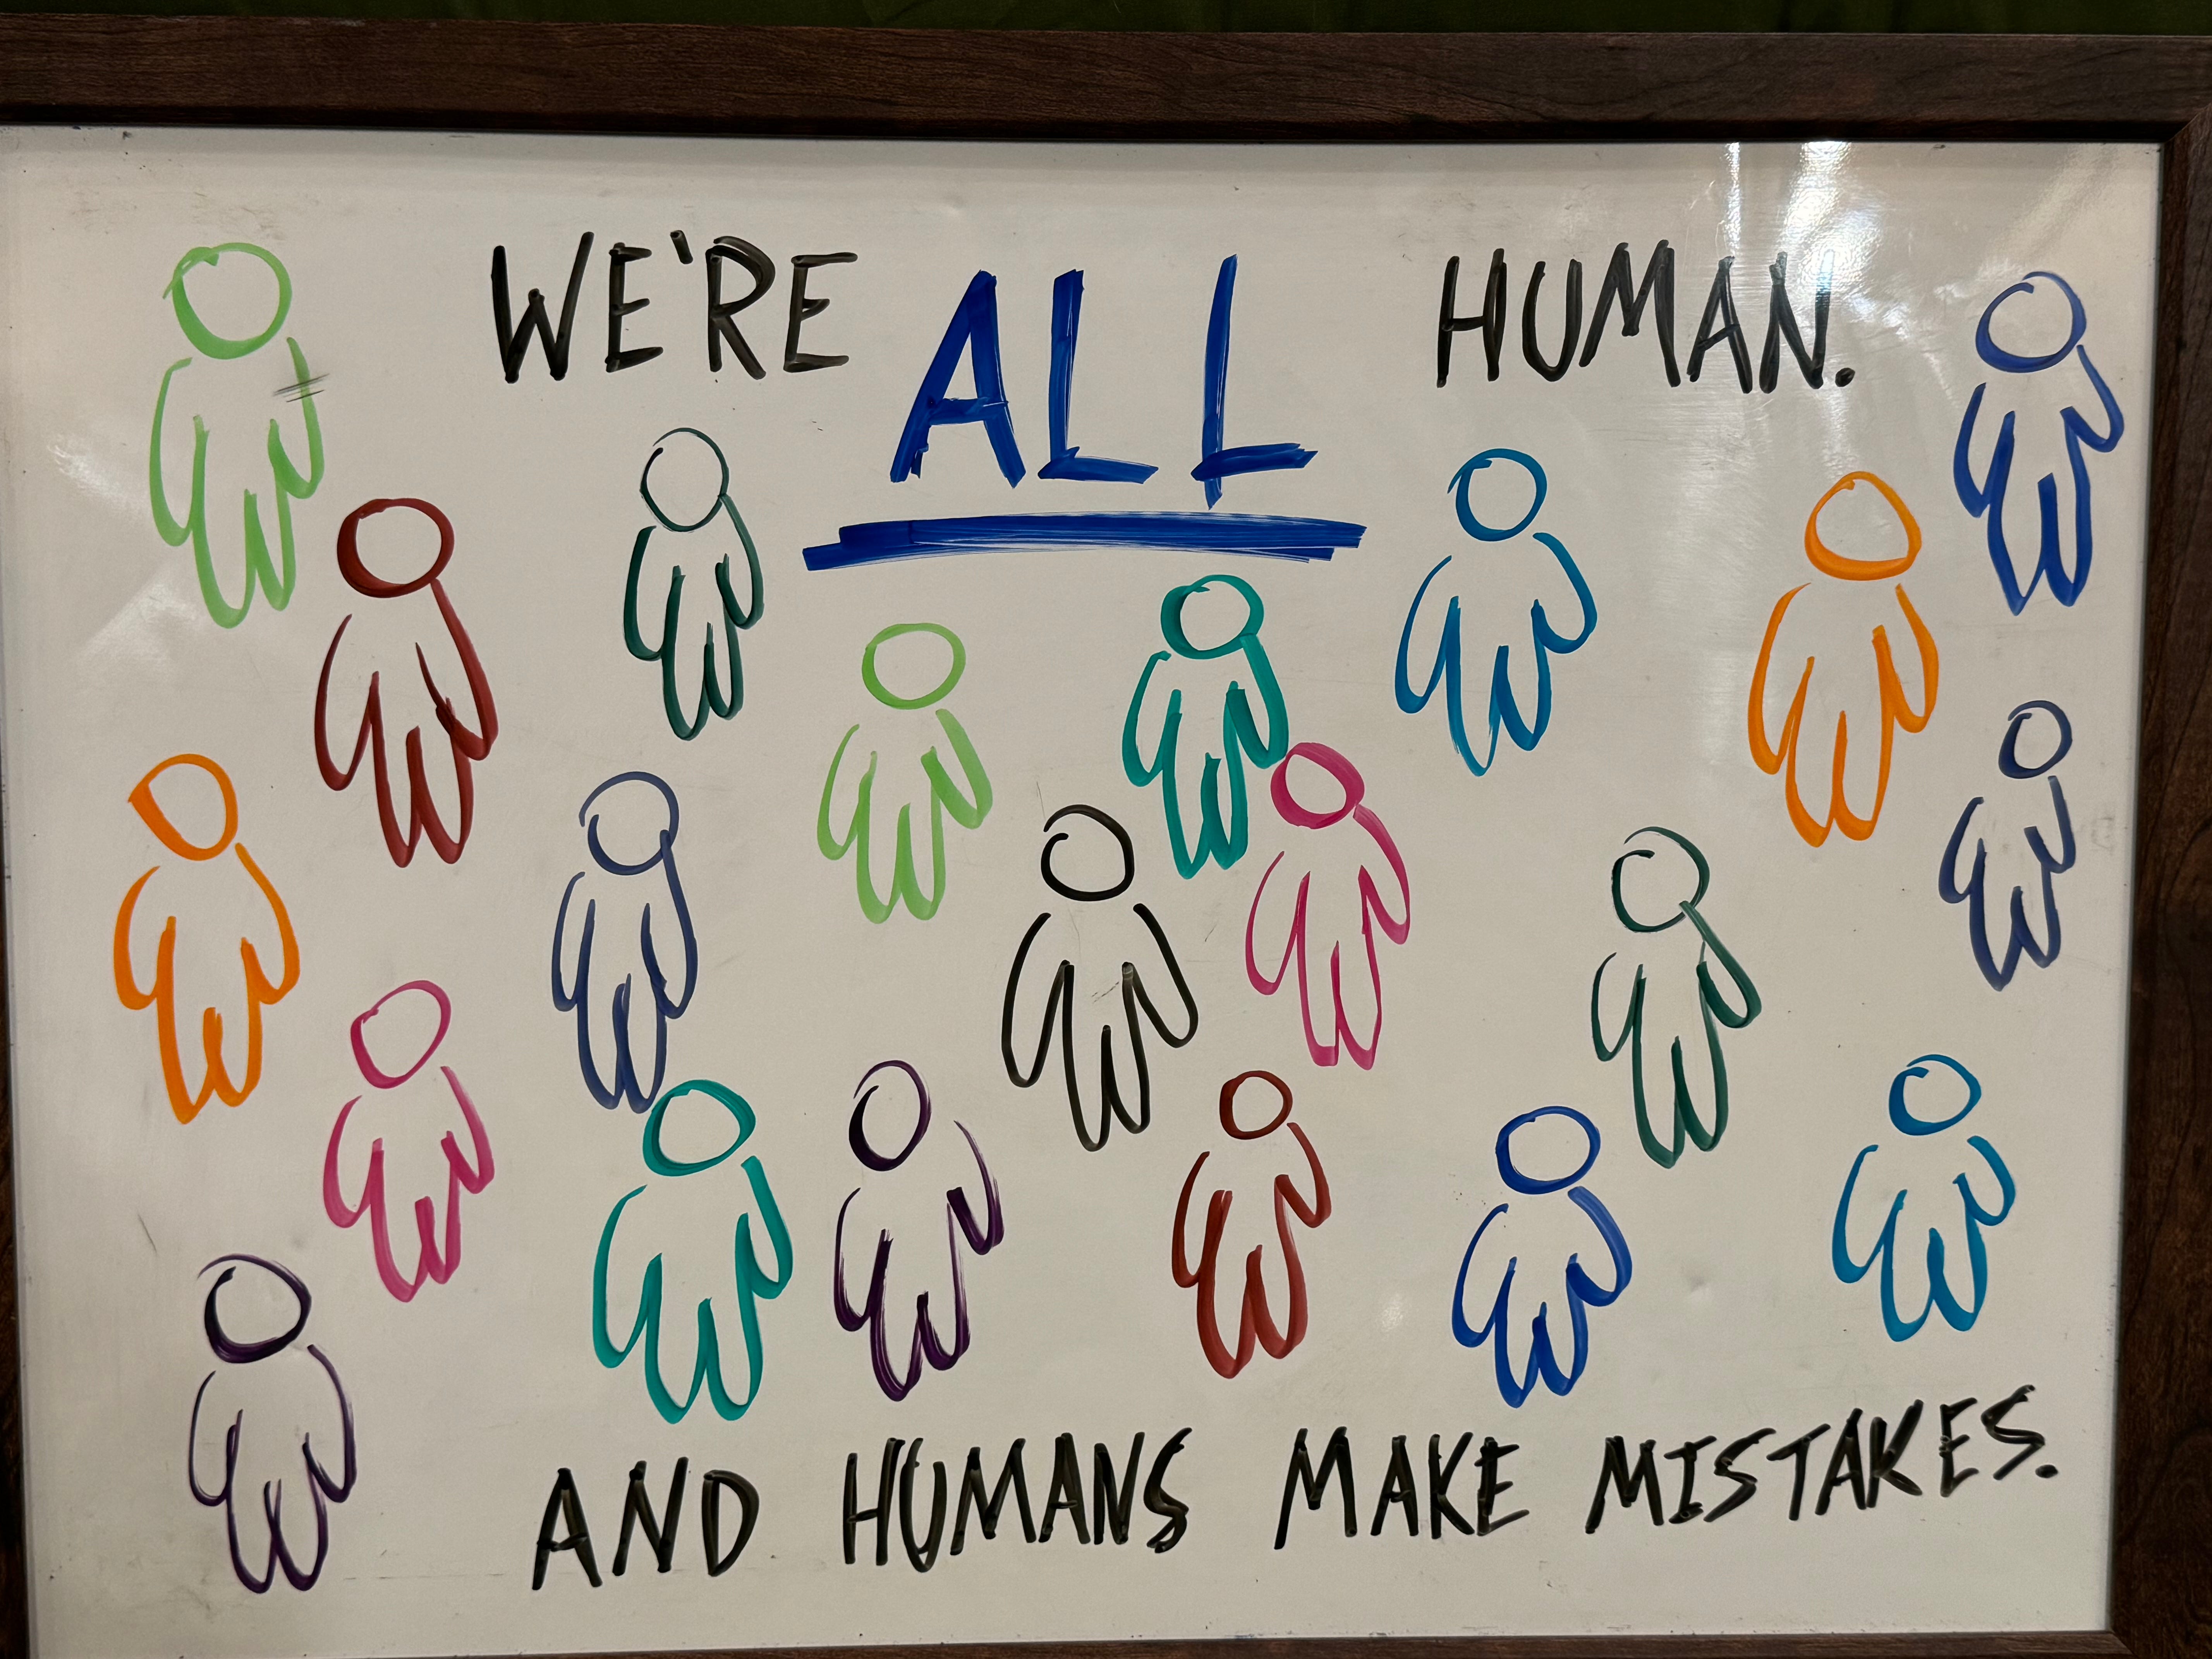 WE'RE ALL HUMAN.
AND HUMANS MAKE MISTAKES.